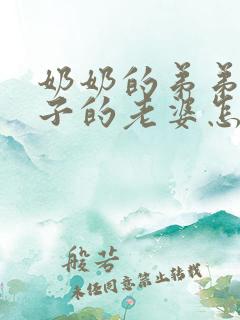 奶奶的弟弟
子的老婆怎
般若
未经同意禁止转载